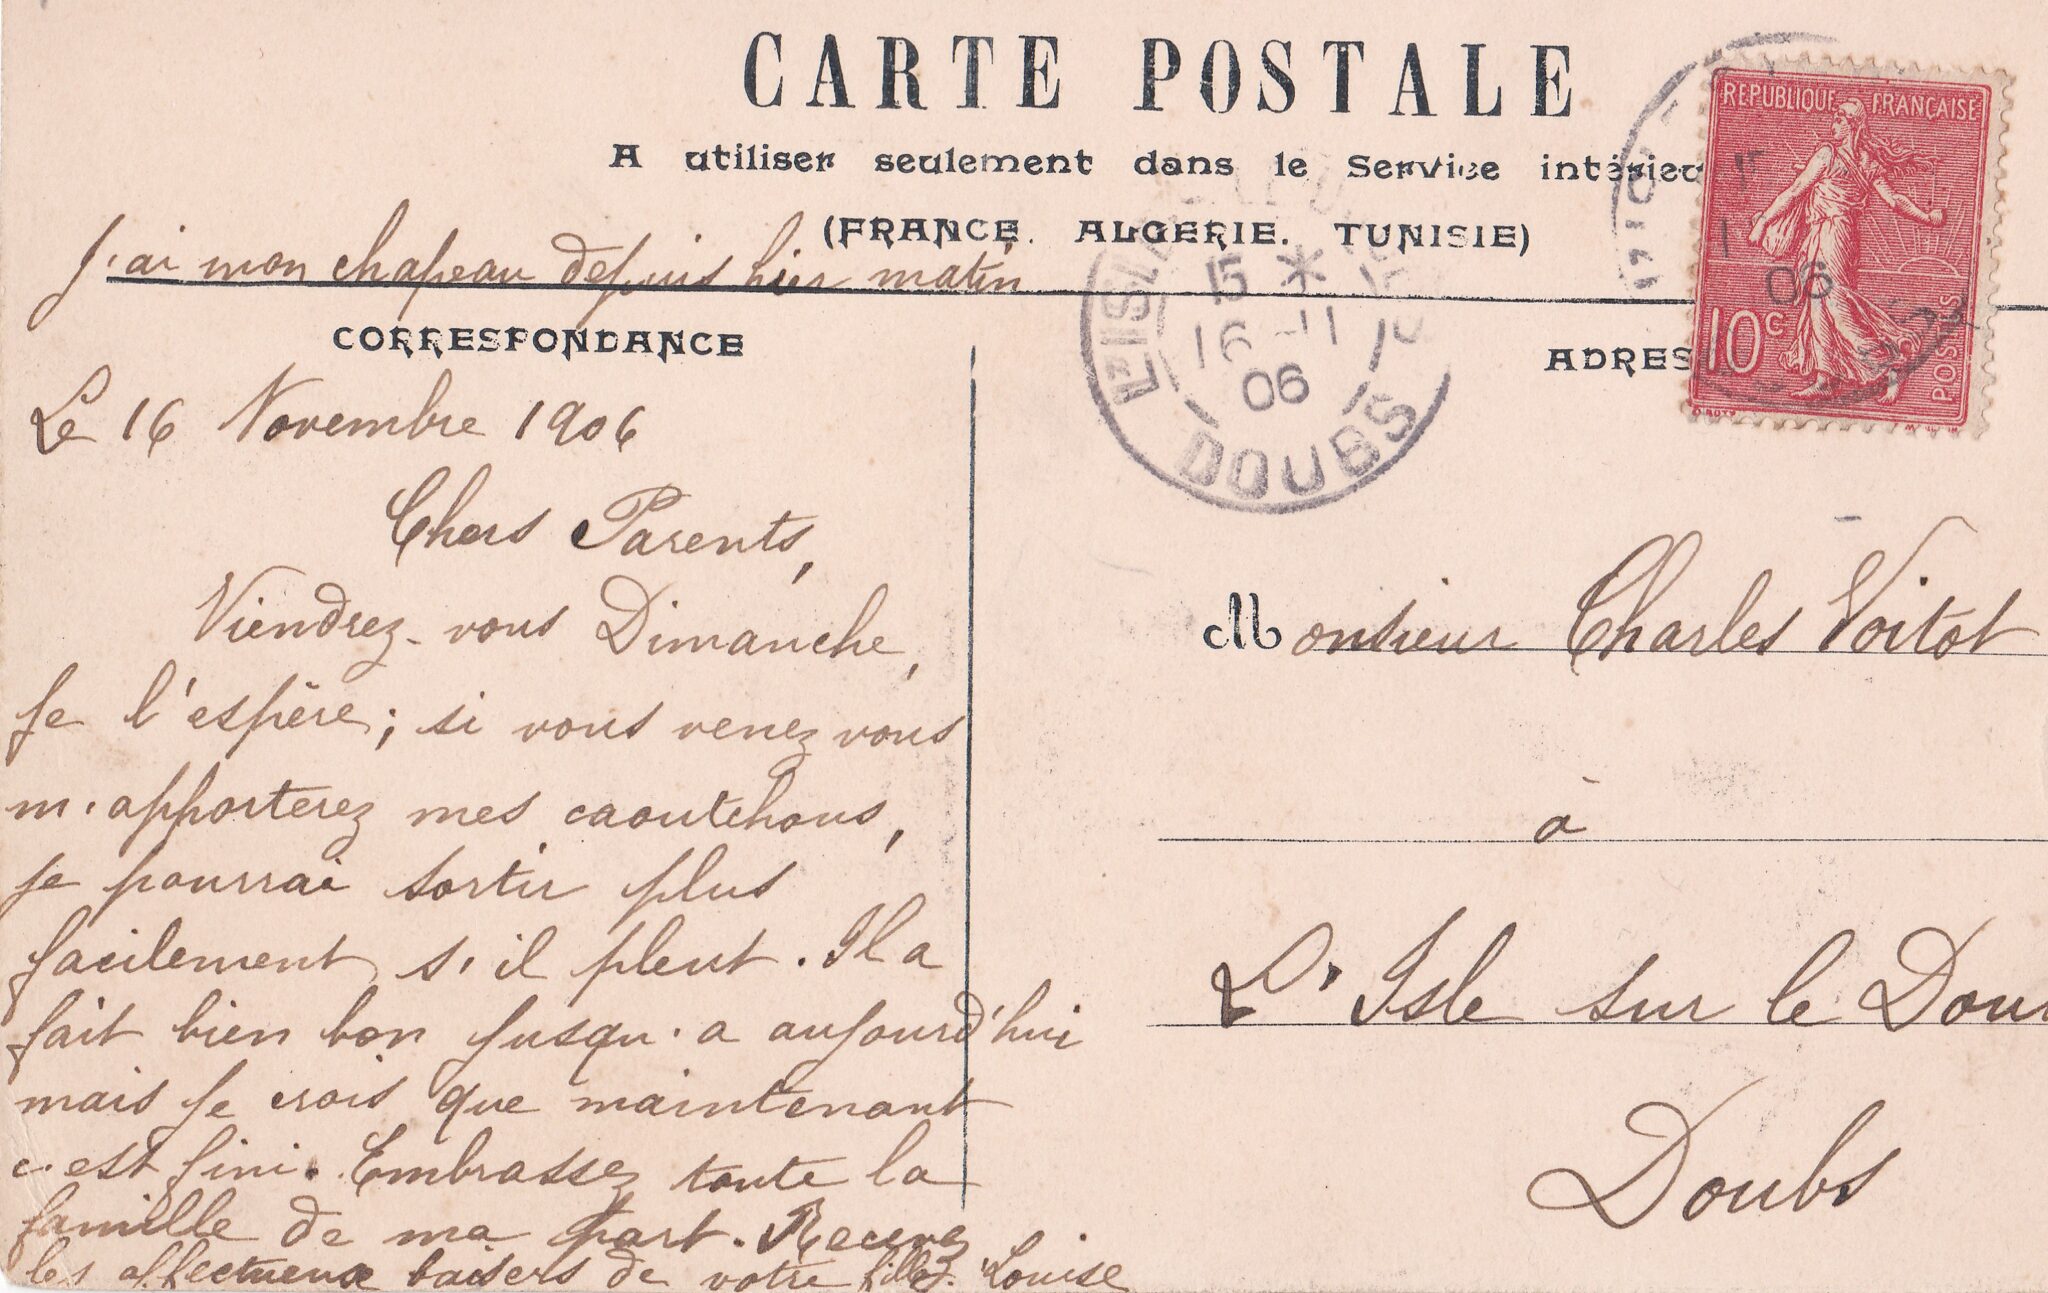 CARTE POSTALE
A utiliser seulement dans le Service intérieu
(FRANCE. ALGERIE. TUNISIE)
j'ai mon chapeau depuis hier matin
CORRESPONDANCE
Le 16 Novembre 1906
Chers Parents,
Viendrez-vous Dimanche,
je l'espère; si vous venez vous
m'apporterez mes caoutchous,
je pourrai sortir plus
facilement s'il pleut. Il a
fait bien bon jusqu'a aujourd'hui
mais je crois que maintenant
c'est fini. Embrassez toute la
famille de ma part. Recevez
les affectueux baisers de votre fille. Louise
ADRES
REPUBLIQUE FRANÇAISE
10c
POSTES
06
15 *
16 -11
06
DOUBS
Monsieur Charles Voitot
à
L'Isle sur le Dou
Doubs